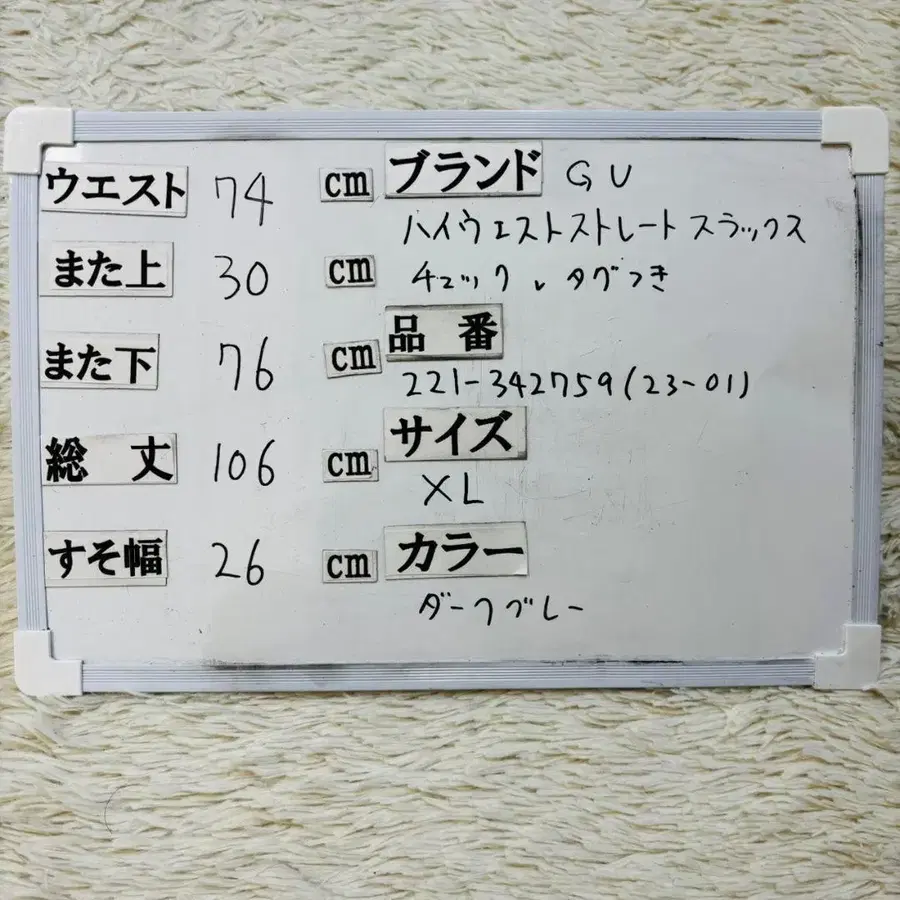 ウエスト 74 cm
また上 30 cm
また下 76 cm
総丈 106 cm
すそ幅 26 cm
ブランド GU
ハイウエストストレートスラックス
チェック、タグつき
品番
221-342759(23-01)
サイズ
XL
カラー
ダークグレー